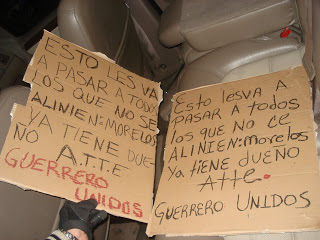 ESTO LES VA
A PASAR A TODOS
LOS QUE NO SE
ALINIEN: MORELOS
YA TIENE DUE
NO
A.T.T.E
GUERRERO
UNIDOS
Esto les va A
PASAR A todos
los que no ce
ALINIEN: morelos
ya tiene dueño
Atte.
GUERRERO UNIDOS